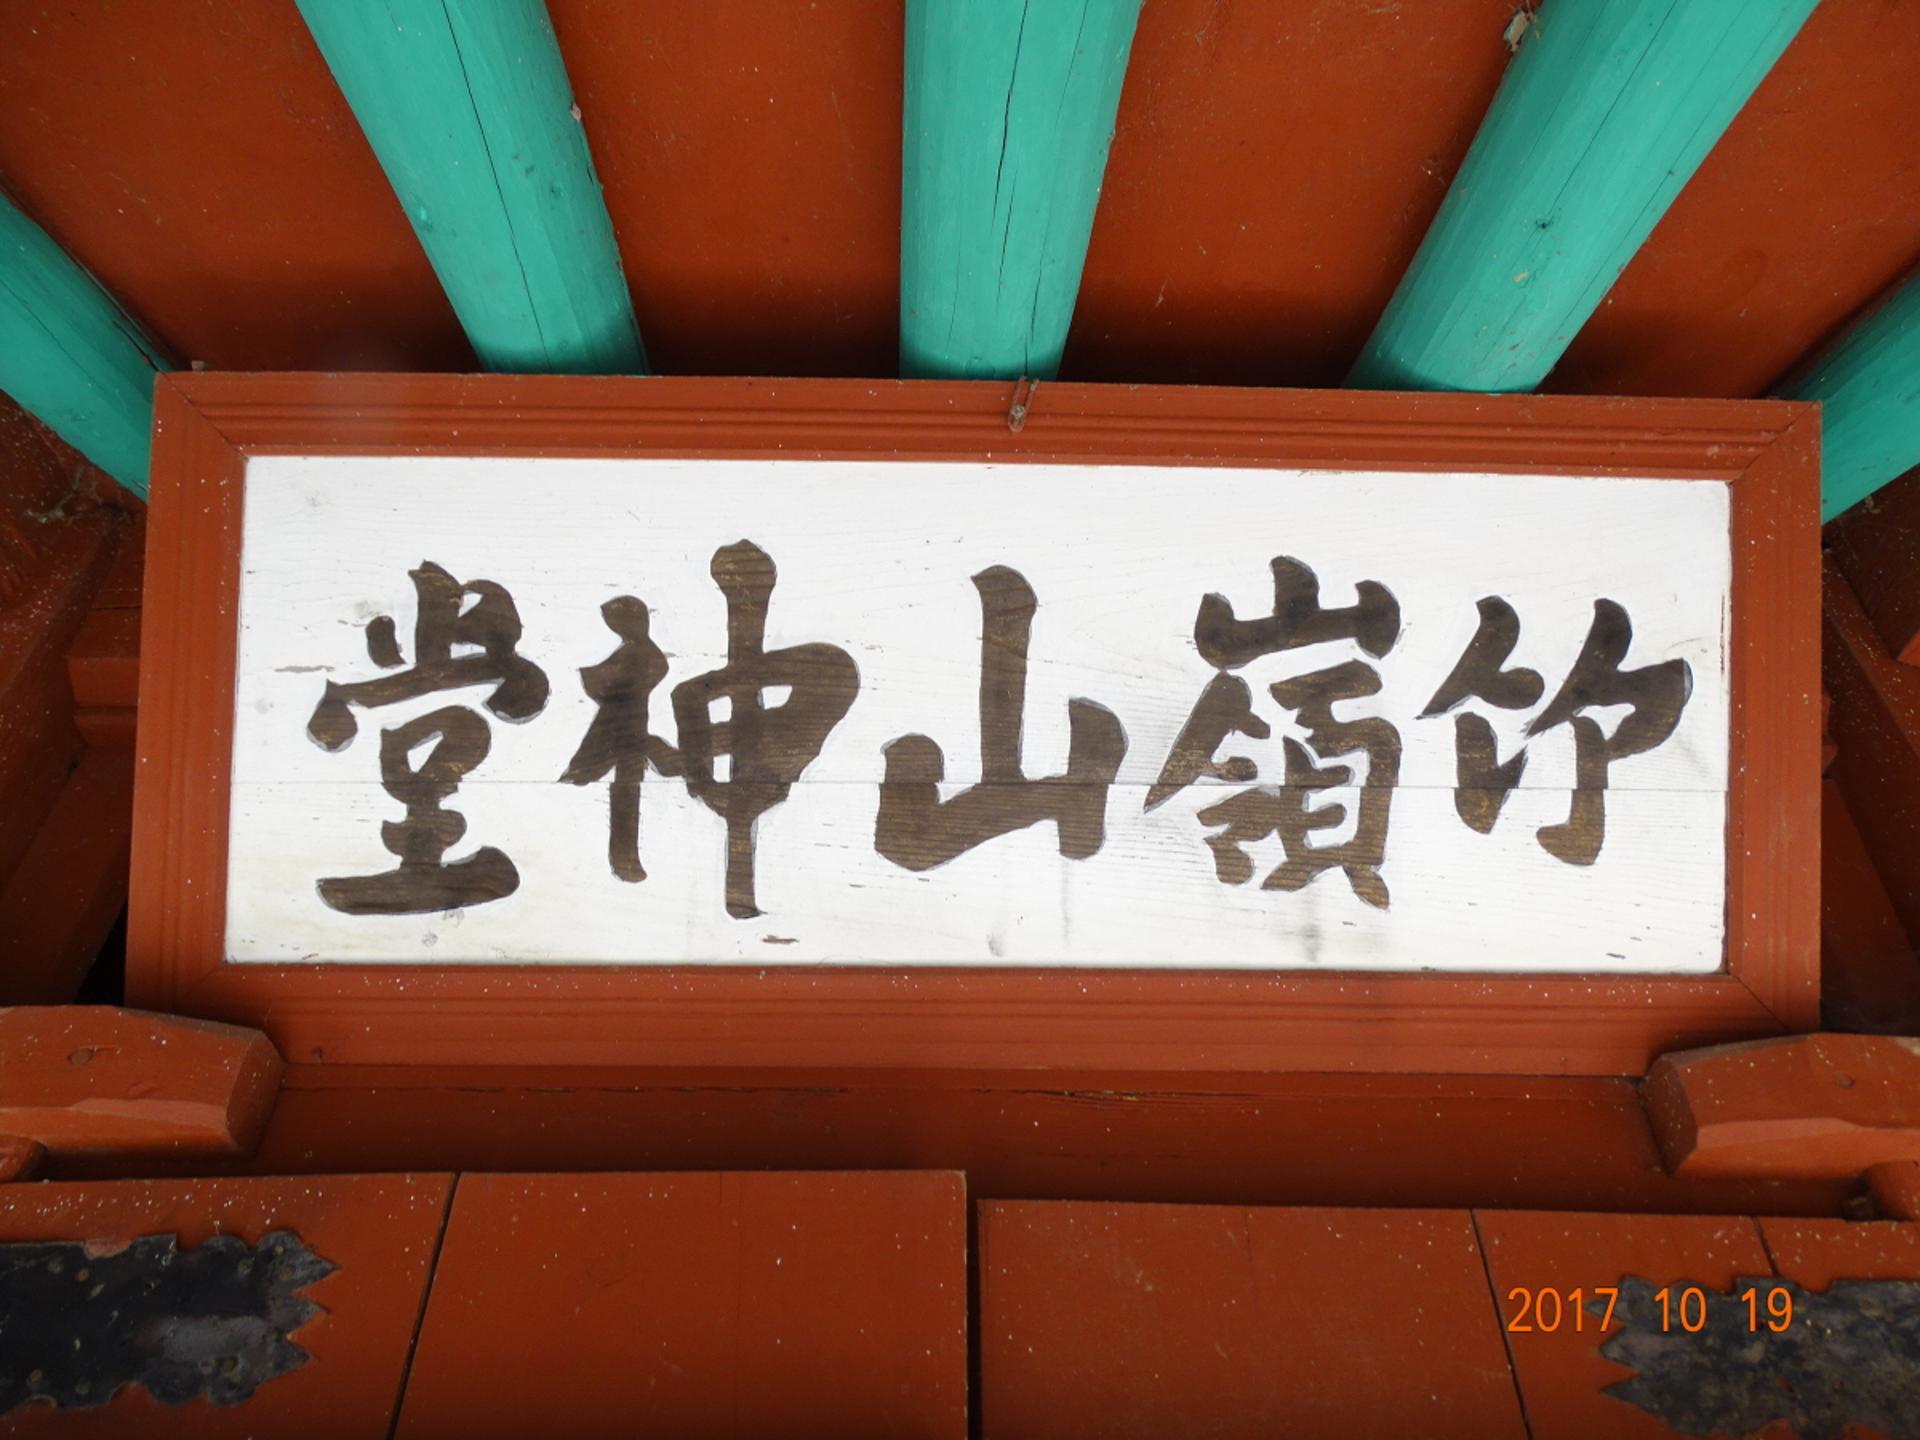 竹嶺山神堂
2017 10 19